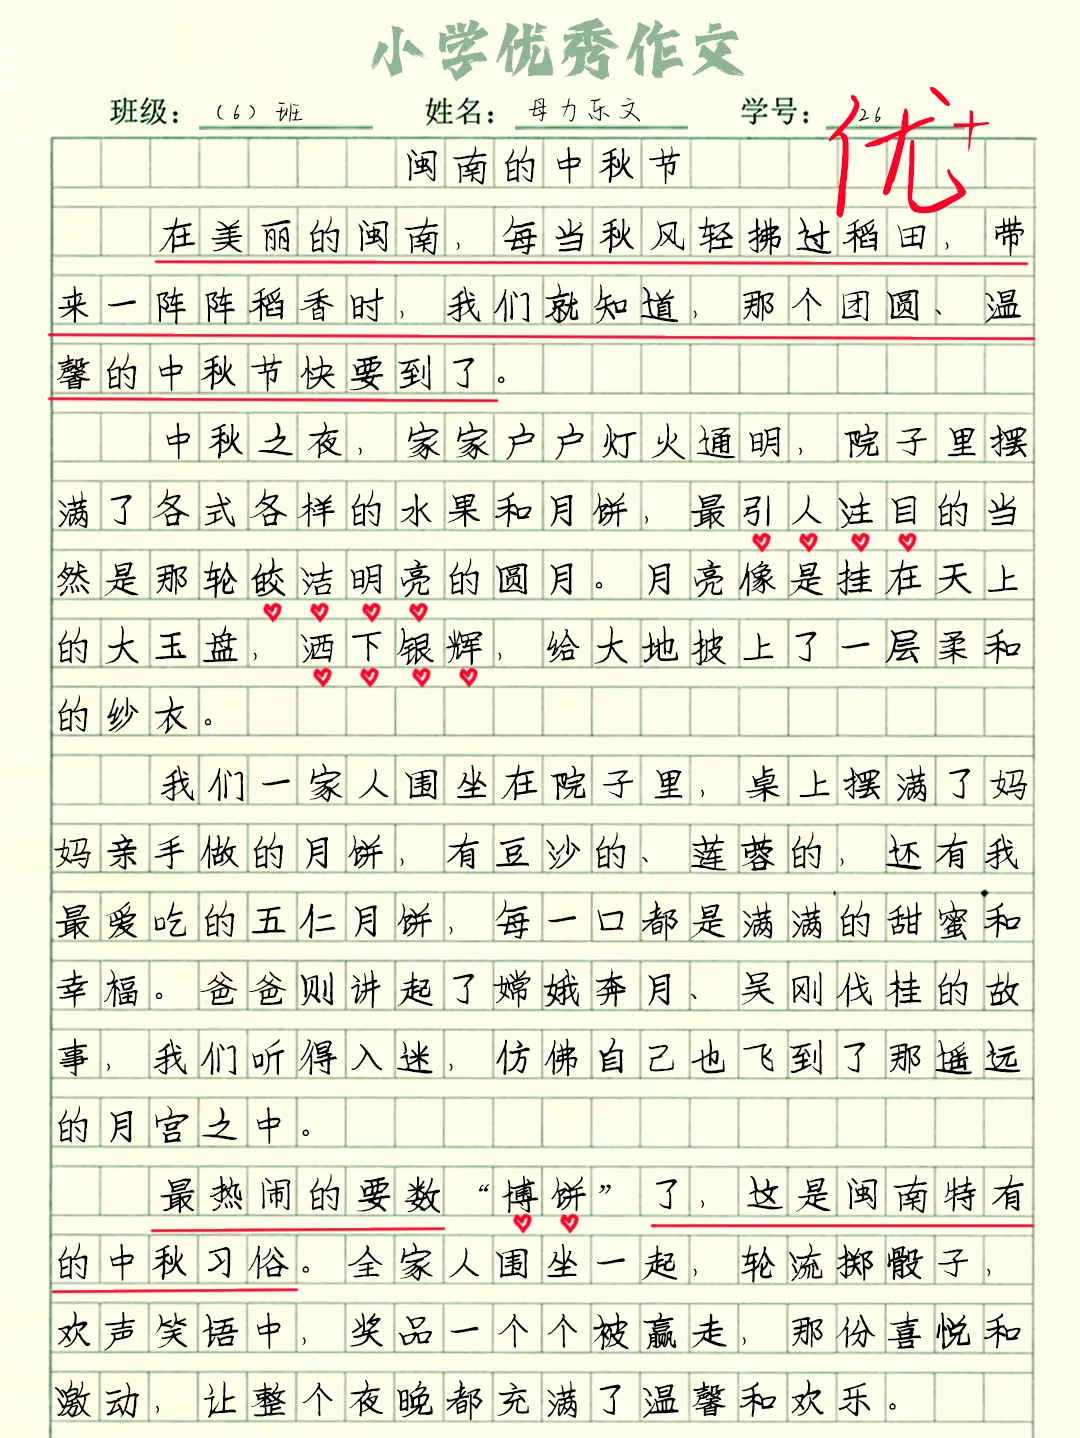 小学优秀作文
班级：（6）班 姓名：母力乐文 学号：26
优+
闽南的中秋节
在美丽的闽南，每当秋风轻拂过稻田，带
来一阵阵稻香时，我们就知道，那个团圆、温
馨的中秋节快要到了。
中秋之夜，家家户户灯火通明，院子里摆
满了各式各样的水果和月饼，最引人注目的当
然是那轮皎洁明亮的圆月。月亮像是挂在天上
的大玉盘，洒下银辉，给大地披上了一层柔和
的纱衣。
我们一家人围坐在院子里，桌上摆满了妈
妈亲手做的月饼，有豆沙的、莲蓉的，还有我
最爱吃的五仁月饼，每一口都是满满的甜蜜和
幸福。爸爸则讲起了嫦娥奔月、吴刚伐桂的故
事，我们听得入迷，仿佛自己也飞到了那遥远
的月宫之中。
最热闹的要数“博饼”了，这是闽南特有
的中秋习俗。全家人围坐一起，轮流掷骰子，
欢声笑语中，奖品一个个被赢走，那份喜悦和
激动，让整个夜晚都充满了温馨和欢乐。